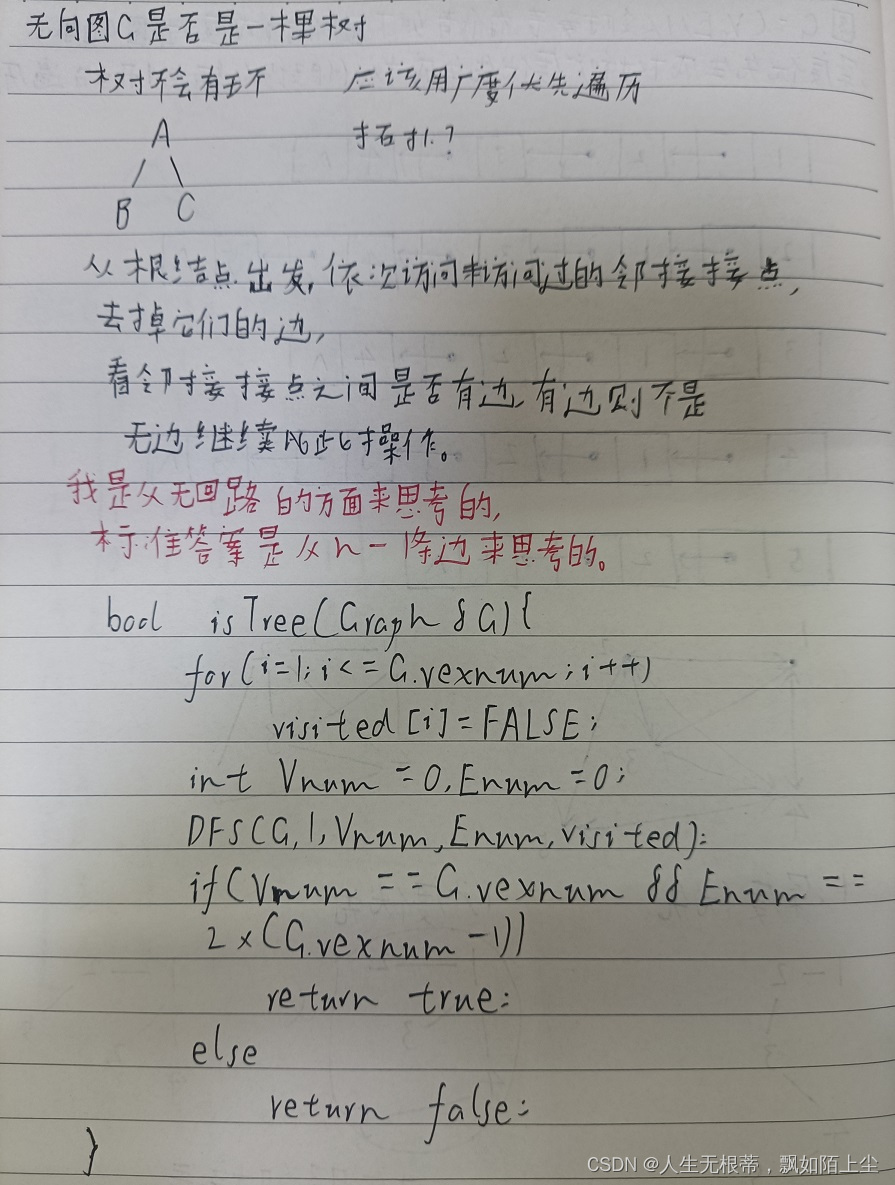 无向图G是否是一棵树
树不会有环 应该用广度优先遍历
A
B C
从根结点出发,依次访问未访问过的邻接接点,
去掉它们的边,
看邻接接点之间是否有边,有边则不是
无边继续此操作。
我是从无回路的方面来思考的,
标准答案是从n-1条边来思考的。
bool isTree(Graph &G){
for(i=1;i<=G.vexnum;i++)
visited[i]=FALSE;
int Vnum=0,Enum=0;
DFS(G,1,Vnum,Enum,visited);
if(Vnum==G.vexnum && Enum==
2×(G.vexnum-1))
return true;
else
return false;
}
CSDN @人生无根蒂，飘如陌上尘